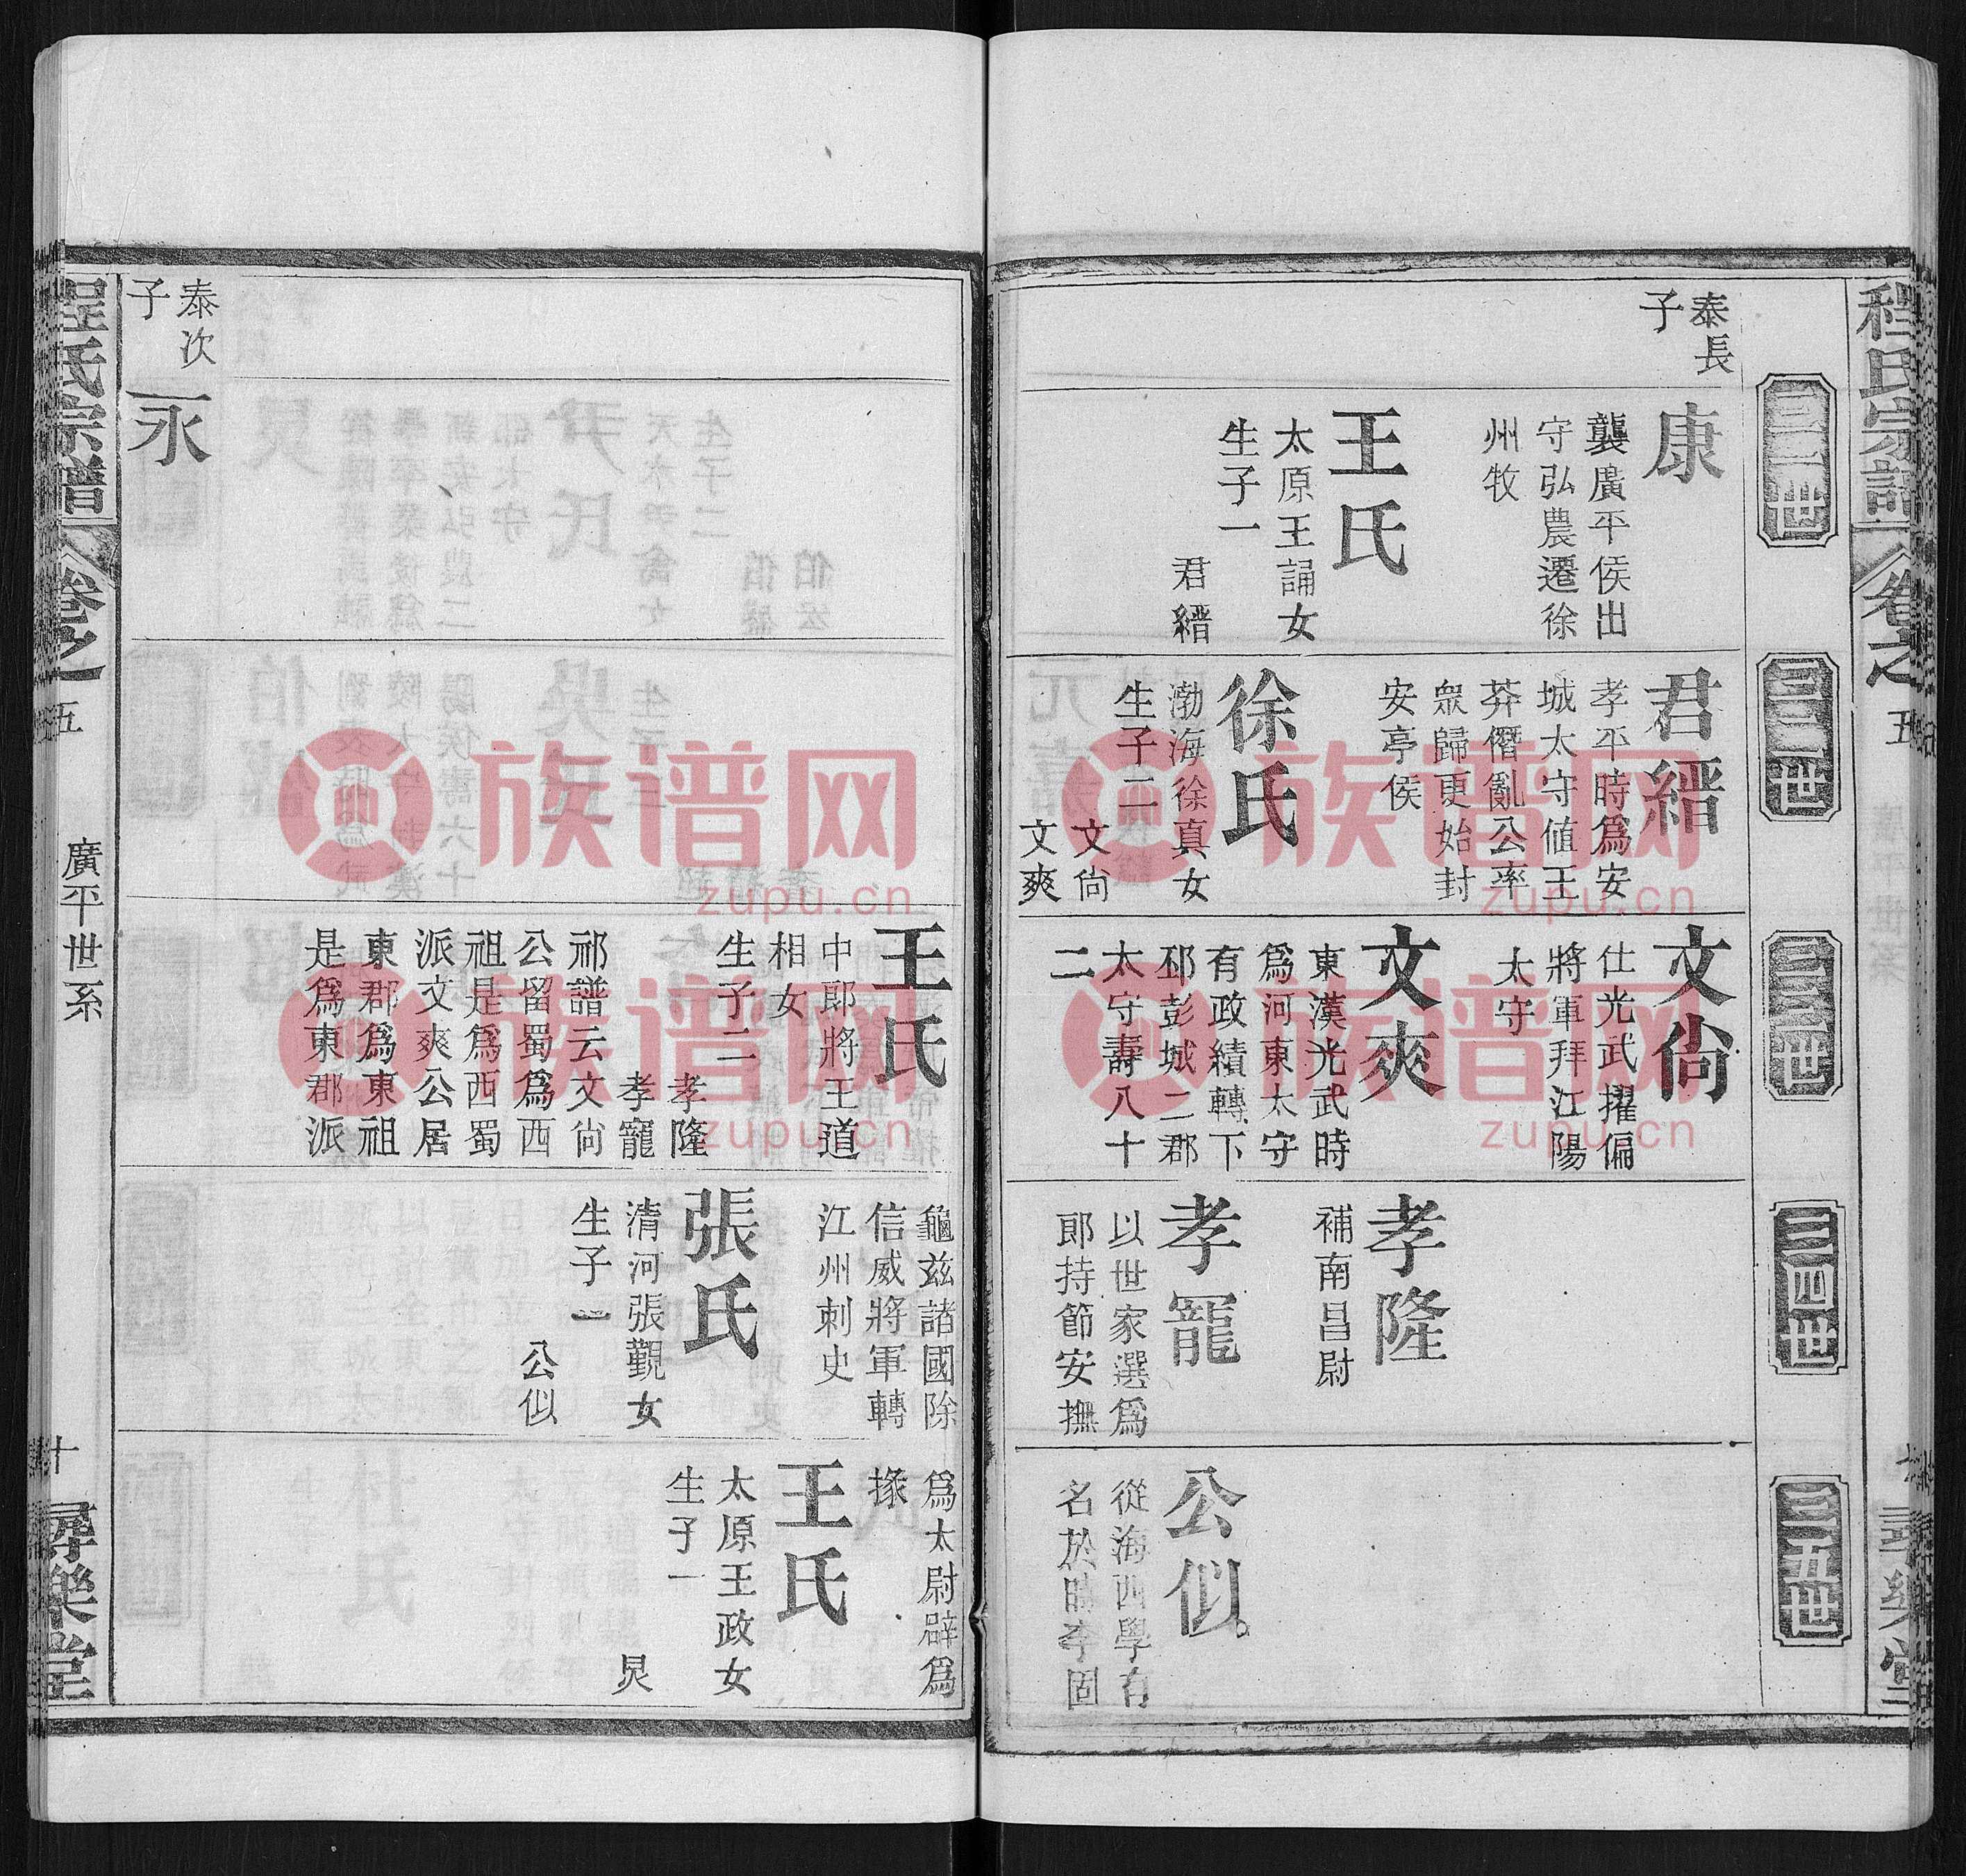 程氏宗譜
卷之
五
尋樂堂
三一世
三二世
三三世
三四世
三五世
泰長
子
康
襲廣平侯出
守弘農遷徐
州牧
王氏
太原王誦女
生子一
君縉
君縉
孝平時為安
城太守值王
莽僭亂公率
眾歸更始封
安亭侯
徐氏
渤海徐真女
生子二
文尙
文爽
文尙
仕光武擢偏
將軍拜江陽
太守
文爽
東漢光武時
為河東太守
有政績轉下
邳彭城二郡
太守壽八十
二
孝隆
補南昌尉
孝寵
以世家選為
郎持節安撫
公似
從海西學有
名於時李固
王氏
中郎將王道
相女
生子二
孝隆
孝寵
祁譜云文尙
公留蜀為西
祖是為西蜀
派文爽公居
東郡為東祖
是為東郡派
龜茲諸國除
信威將軍轉
江州刺史
張氏
清河張觀女
生子一
公似
為太尉辟為
掾
王氏
太原王政女
生子一
炅
泰次
子
永
程氏宗譜
卷之
五
廣平世系
十
尋樂堂
族谱网
zupu.cn
族谱网
zupu.cn
族谱网
zupu.cn
族谱网
zupu.cn